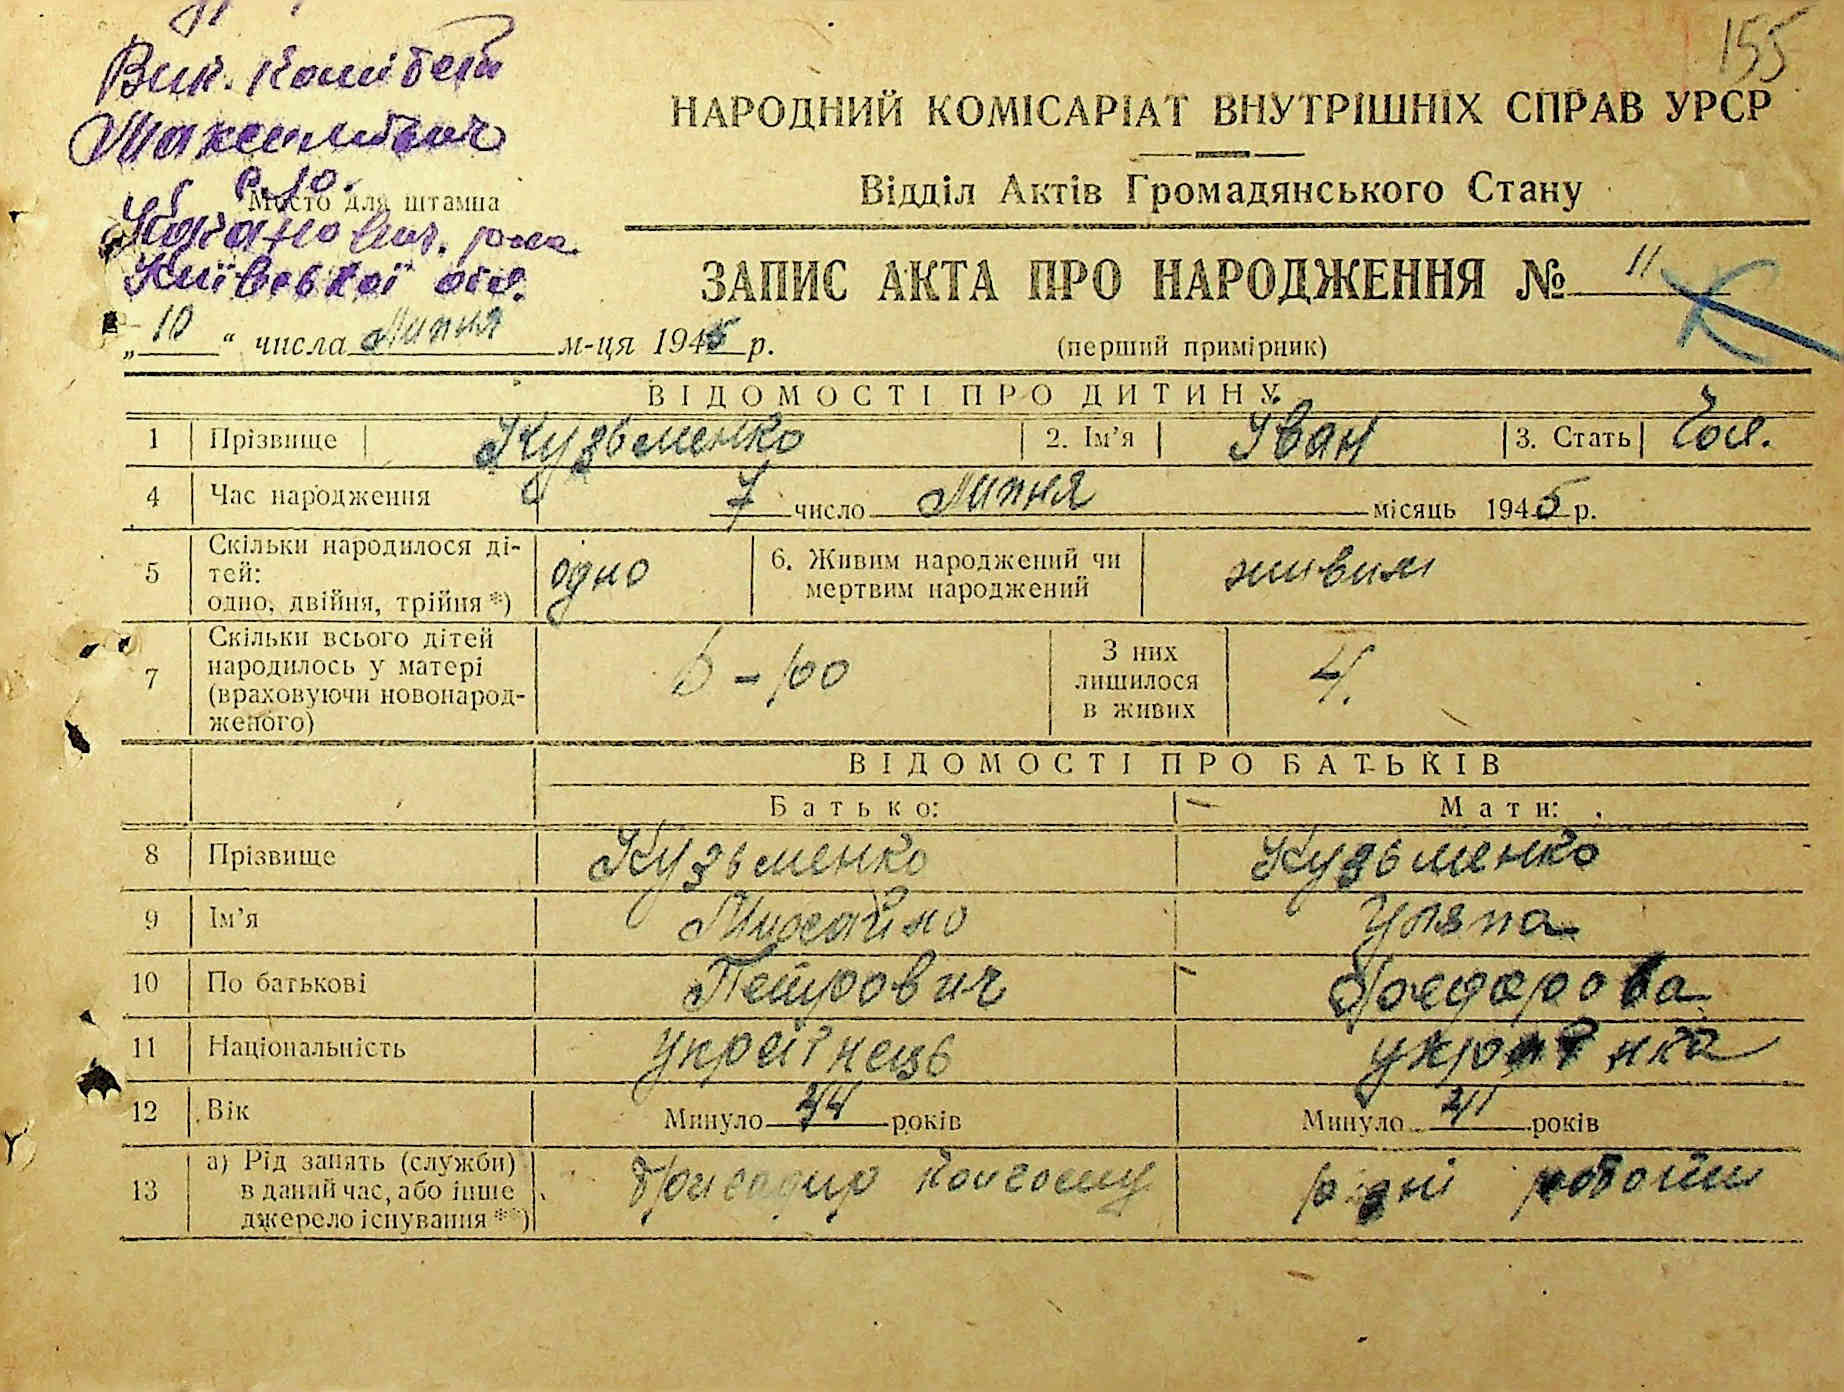 155
Вик. Комітет
Максимович
С.Ю.
Місто для штампа
Каганович. р-на
Київської обл.
НАРОДНИЙ КОМІСАРІАТ ВНУТРІШНІХ СПРАВ УРСР
Відділ Актів Громадянського Стану
ЗАПИС АКТА ПРО НАРОДЖЕННЯ № 11
„10“ числа Липня м-ця 1945 р.
(перший примірник)
ВІДОМОСТІ ПРО ДИТИНУ
1 Прізвище Кузьменко 2. Ім’я Іван 3. Стать Чол.
4 Час народження 7 число Липня місяць 1945 р.
5 Скільки народилося ді-
тей:
одно, двійня, трійня *) одно 6. Живим народжений чи
мертвим народжений живим
7 Скільки всього дітей
народилось у матері
(враховуючи новонарод-
женого) З них
лишилося
в живих 4.
ВІДОМОСТІ ПРО БАТЬКІВ
Батько: Мати:
8 Прізвище Кузьменко Кузьменко
9 Ім’я Михайло Уляна
10 По батькові Петрович Федорова
11 Національність українець українка
12 Вік Минуло 44 років Минуло 41 років
13 а) Рід занять (служби)
в даний час, або інше
джерело існування **) Бригадир колгоспу різні роботи